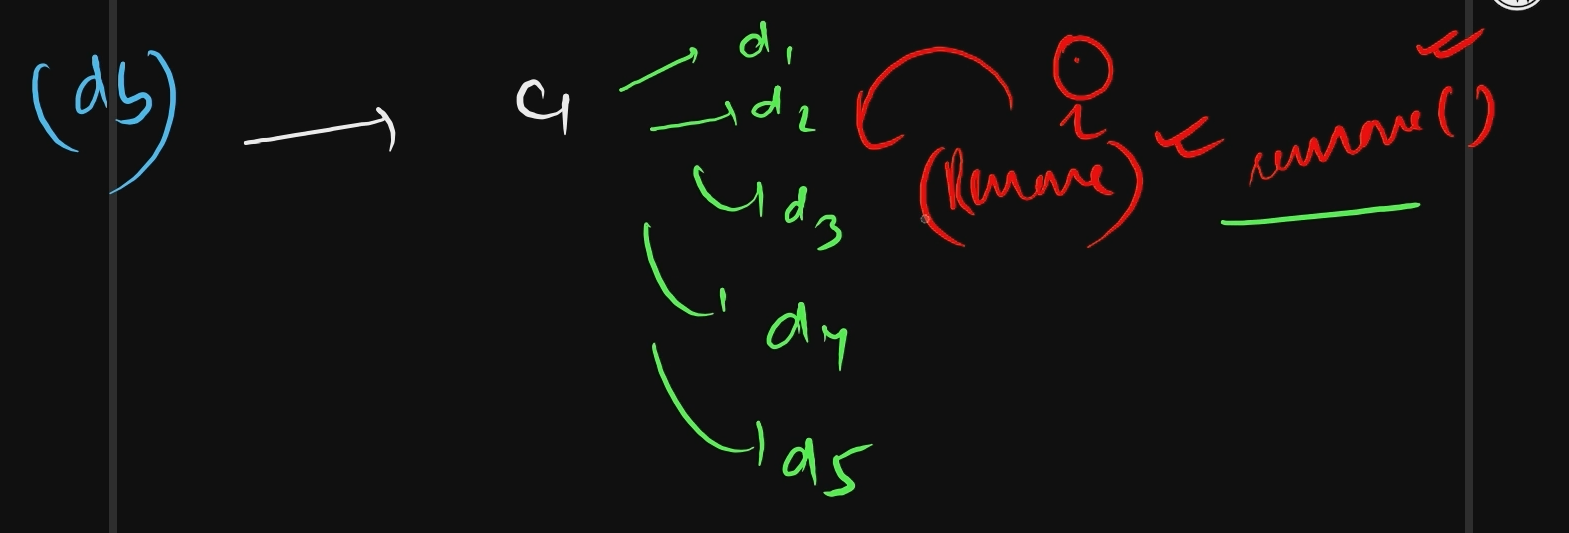 (db)
C1
d1
d2
d3
d4
d5
(Remove)
remove()